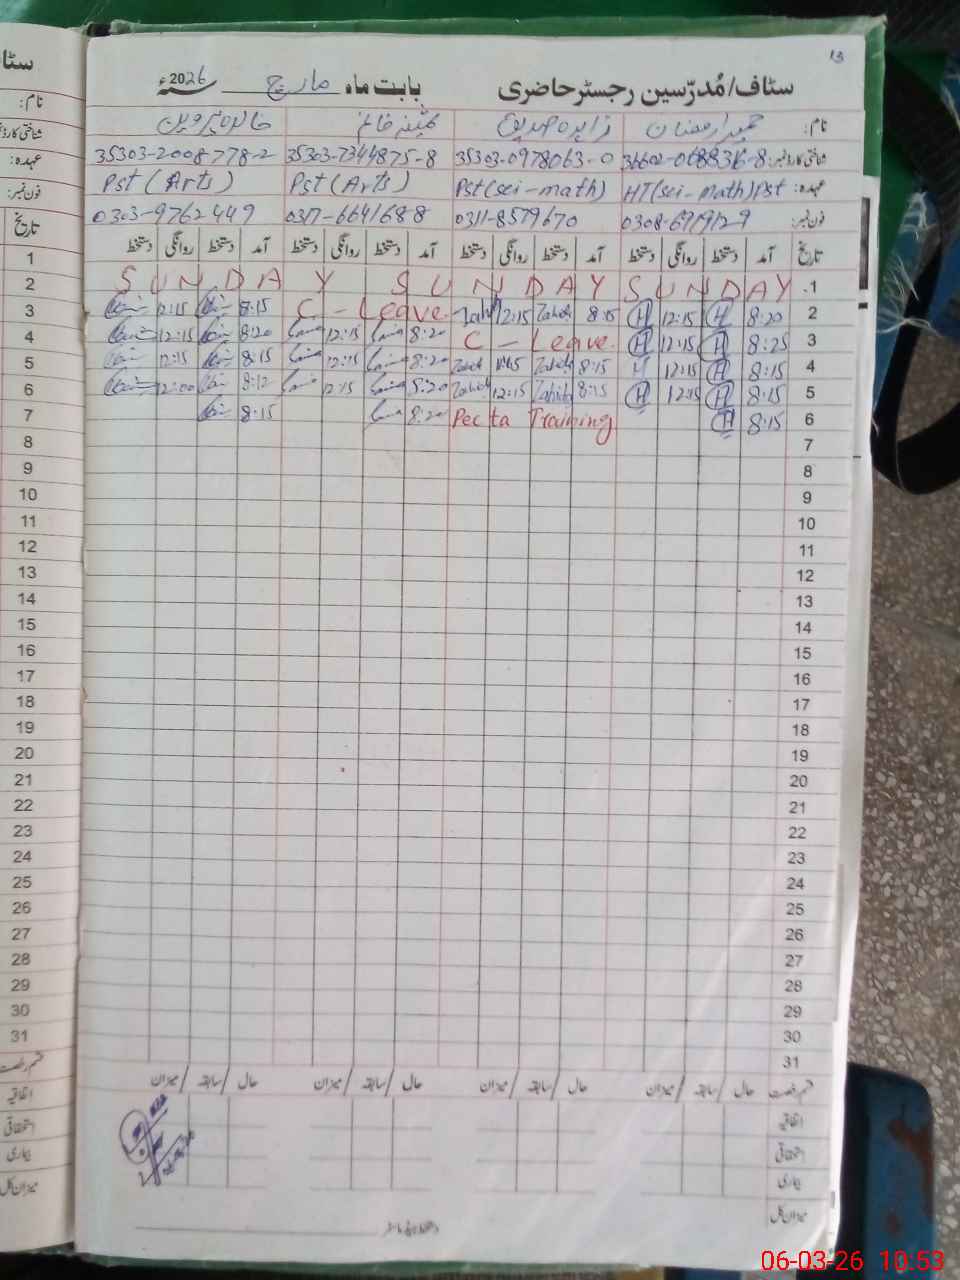 13
سٹاف/مُدرّسین رجسٹر حاضری بابت ماہ مارچ سنہ 2026ء
نام: حمیرا رمضان زاہدہ صدیق ثمینہ خانم خالدہ پروین
شناختی کارڈ نمبر: 35303-0978063-0 35303-7344875-8 35303-2008778-2
عہدہ: HT(sci-math)Pst Pst(sci-math) Pst(Arts) Pst(Arts)
فون نمبر: 0311-8579670 0317-6641688 0303-9762449
تاریخ آمد دستخط روانگی دستخط آمد دستخط روانگی دستخط آمد دستخط روانگی دستخط آمد دستخط روانگی دستخط
1 SUNDAY SUNDAY
2 8:20 H 12:15 H 8:15 Zahida 12:15 C-Leave 8:15 12:15
3 8:25 H 12:15 H C-Leave 8:20 12:15 8:20 12:15
4 8:15 H 12:15 H 8:15 Zahida 8:20 12:15 8:15 12:15
5 8:15 H 12:15 H 8:15 Zahida 12:15 8:20 12:15 8:12 12:00
6 8:15 H Pecta Training 8:20 8:15
7
8
9
10
11
12
13
14
15
16
17
18
19
20
21
22
23
24
25
26
27
28
29
30
31
قسم رخصت حال سابقہ میزان حال سابقہ میزان حال سابقہ میزان حال سابقہ میزان
اتفاقیہ
استحقاقی
بیماری
میزان کل
دستخط ہیڈ ماسٹر
سٹا
نام:
شناختی کارڈ نمبر
عہدہ:
فون نمبر:
تاریخ
1
2
3
4
5
6
7
8
9
10
11
12
13
14
15
16
17
18
19
20
21
22
23
24
25
26
27
28
29
30
31
قسم رخصت
اتفاقیہ
استحقاقی
بیماری
میزان کل
06-03-26 10:53